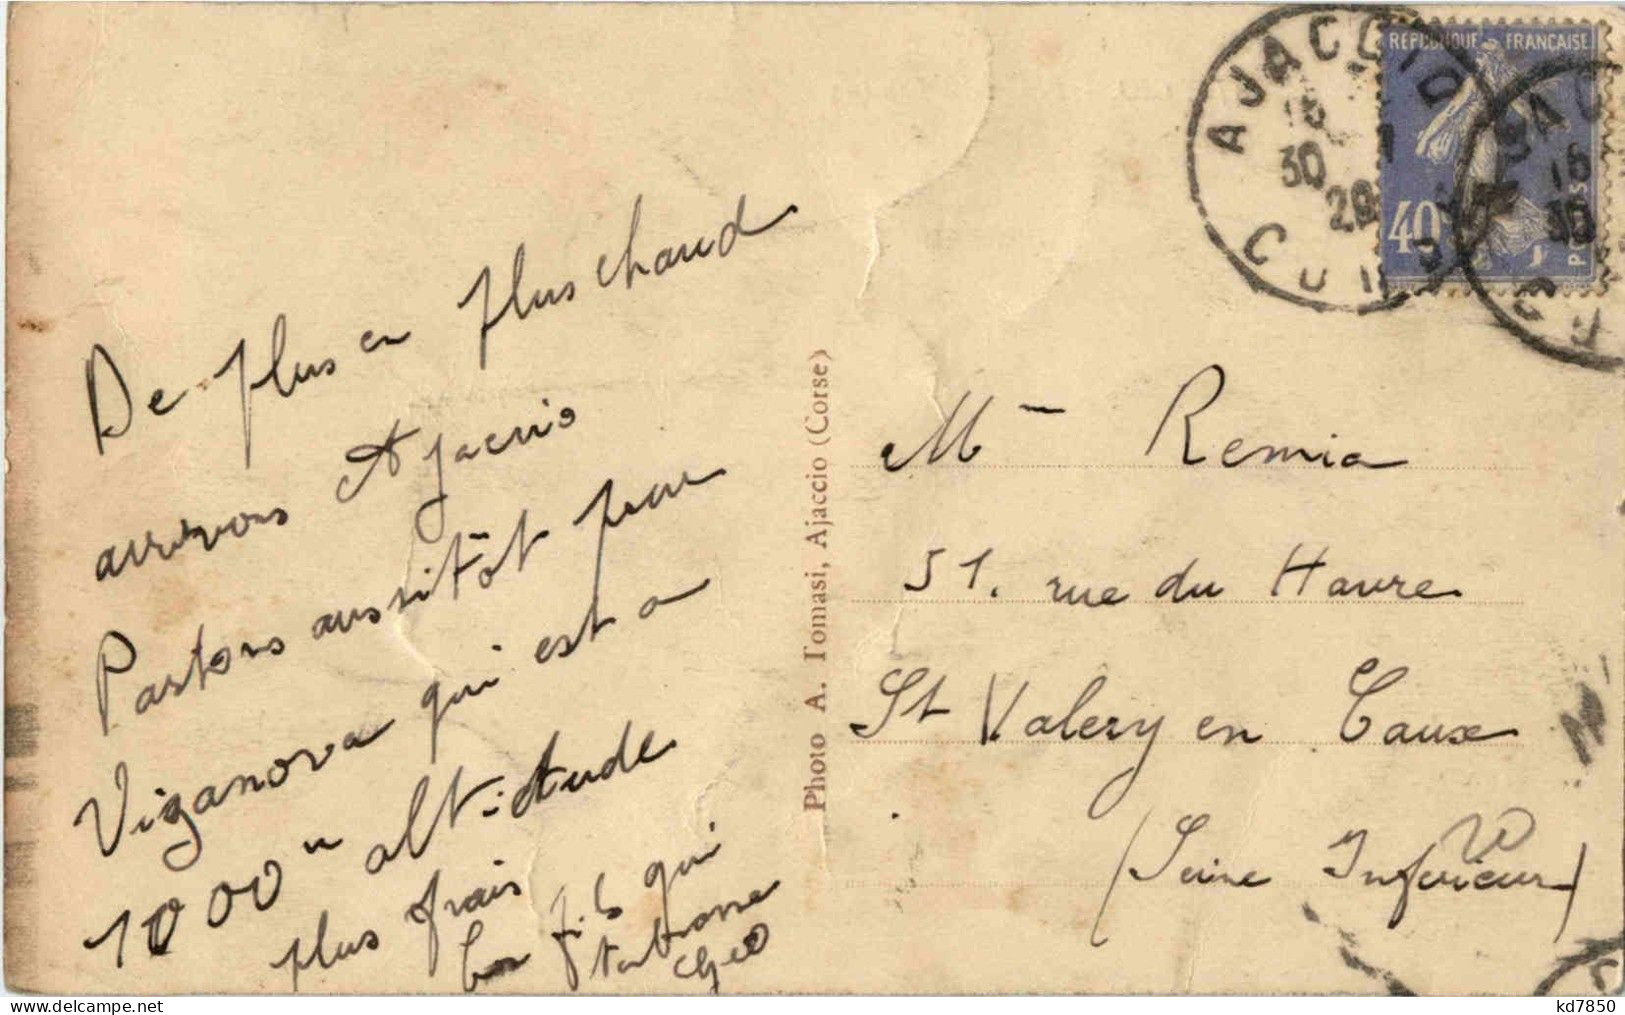 De plus en plus chaud
arrivons Ajaccio
Partons aussitôt pour
Vizanova qui est a
1000 m altitude
plus frais
ton fils qui
t'embrasse
Geo
Photo A. Tomasi, Ajaccio (Corse)
AJACCIO
16
30
CORSE
REPUBLIQUE FRANÇAISE
40
POSTES
16
30
Mme Remia
51. rue du Havre
St Valery en Caux
(Seine Inférieure)
kd7850